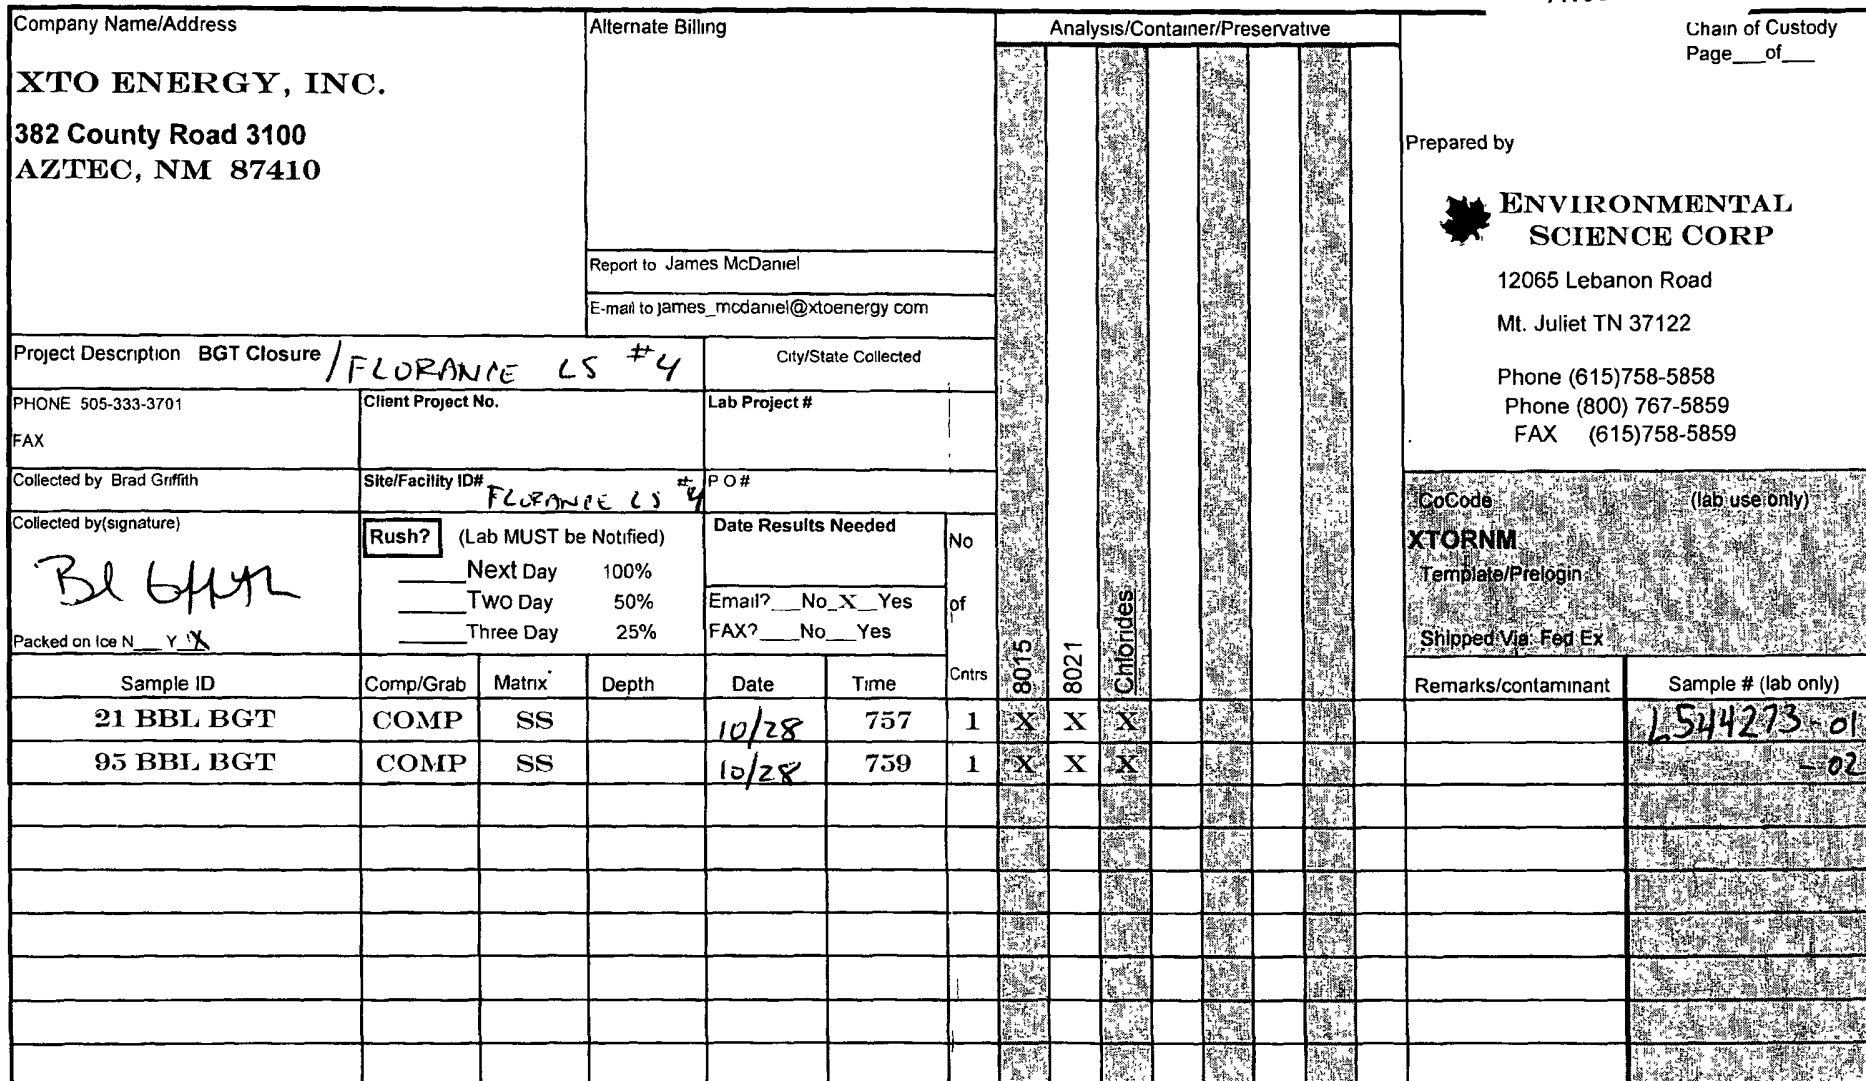 Company Name/Address
XTO ENERGY, INC.
382 County Road 3100
AZTEC, NM 87410
Alternate Billing
Report to James McDaniel
E-mail to james_mcdaniel@xtoenergy com
Analysis/Container/Preservative
Chain of Custody
Page___of___
Prepared by
ENVIRONMENTAL
SCIENCE CORP
12065 Lebanon Road
Mt. Juliet TN 37122
Phone (615)758-5858
Phone (800) 767-5859
FAX (615)758-5859
Project Description BGT Closure / FLORANCE LS #4
City/State Collected
PHONE 505-333-3701
FAX
Client Project No.
Lab Project #
Collected by Brad Griffith
Site/Facility ID# FLORANCE LS #4
P O #
Collected by(signature)
Packed on Ice N___ Y X
Rush? (Lab MUST be Notified)
______Next Day 100%
______Two Day 50%
______Three Day 25%
Date Results Needed
Email?___No_X__Yes
FAX?____No___Yes
No
of
Cntrs
8015
8021
Chlorides
CoCode (lab use only)
XTORNM
Template/Prelogin
Shipped Via: Fed Ex
Sample ID Comp/Grab Matrix Depth Date Time Remarks/contaminant Sample # (lab only)
21 BBL BGT COMP SS 10/28 757 1 X X X L544273-01
95 BBL BGT COMP SS 10/28 759 1 X X X -02